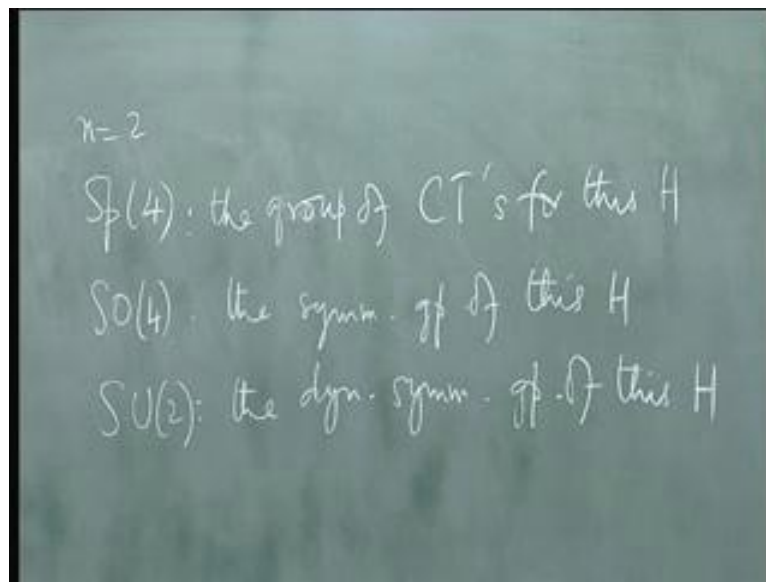 n=2
Sp(4): the group of CT's for this H
SO(4). the symm. gp of this H
SU(2): the dyn. symm. gp. of this H